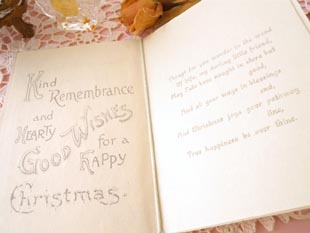 Kind
Remembrance
and
Hearty
Good Wishes
for a
Happy
Christmas.
Though far you wander in the world
Of life, my darling little friend,
May Fate have naught in store but
good,
And all your ways in blessings
end,
And Christmas joys your pathway
line,
True happiness be ever thine.